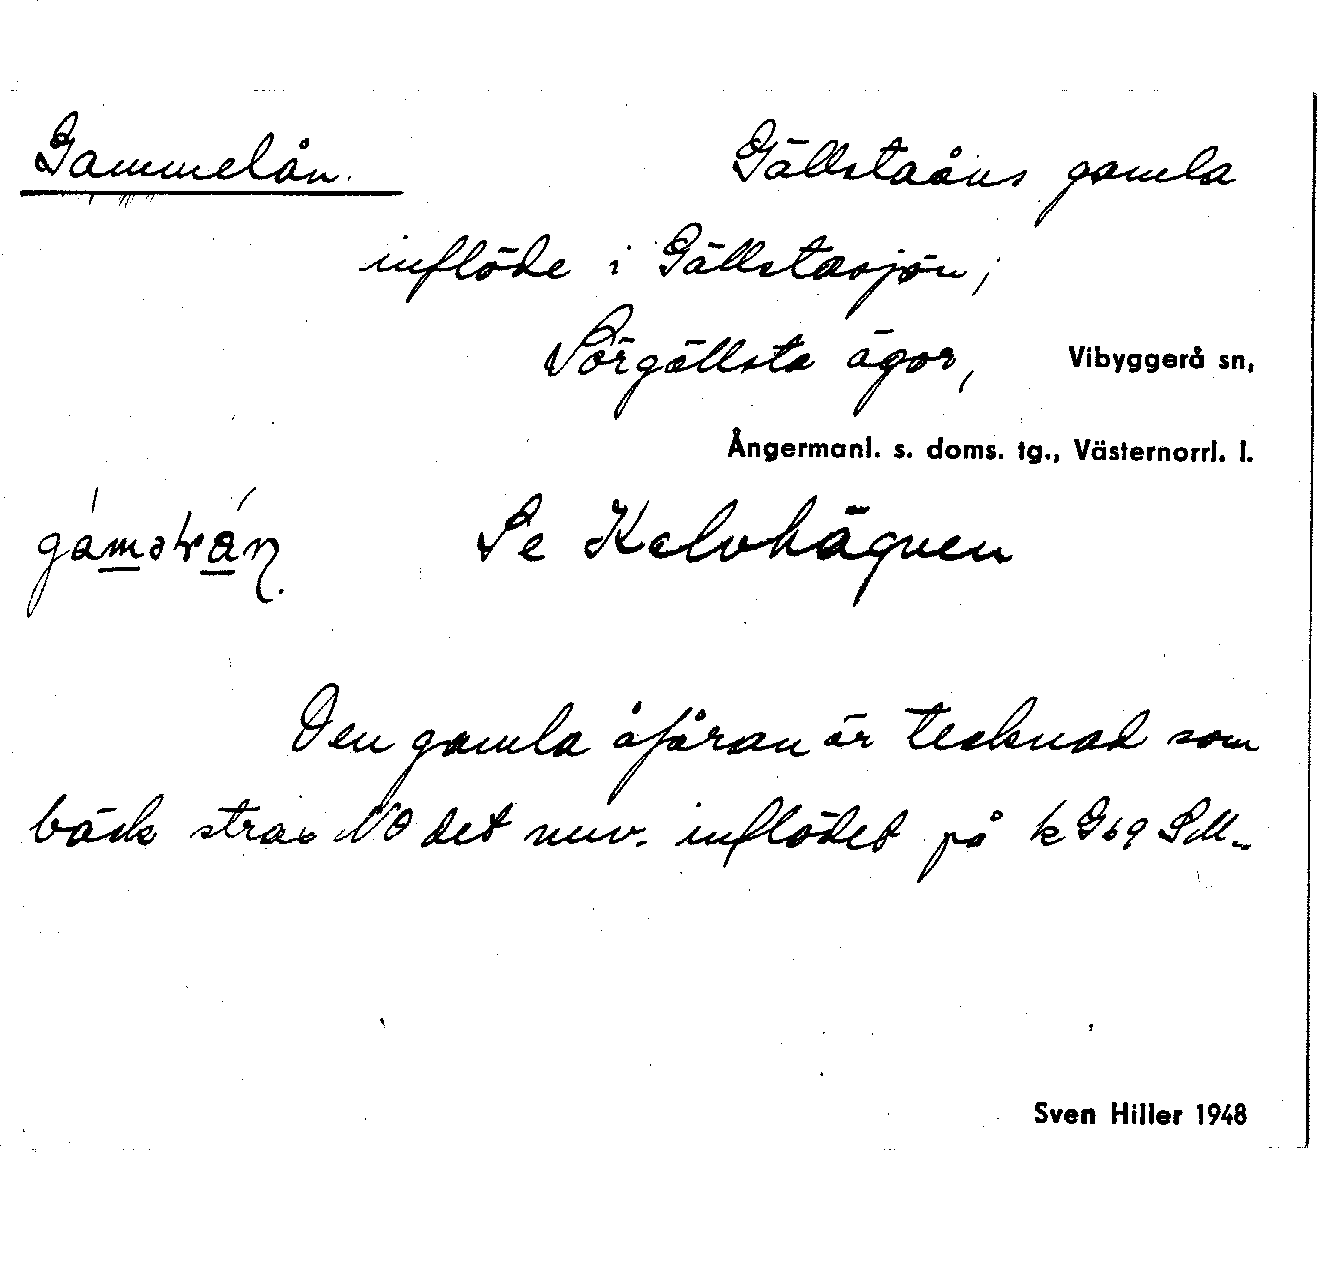 Gammelån. Gällstaåns gamla
inflöde i Gällstasjön,
Sörgällsta ägor, Vibyggerå sn,
Ångermanl. s. doms. tg., Västernorrl. l.
Se Kalvhägnen
Den gamla åfåran är tecknad som
bäck strax NO det nuv. inflödet på k G69 SM..
Sven Hiller 1948